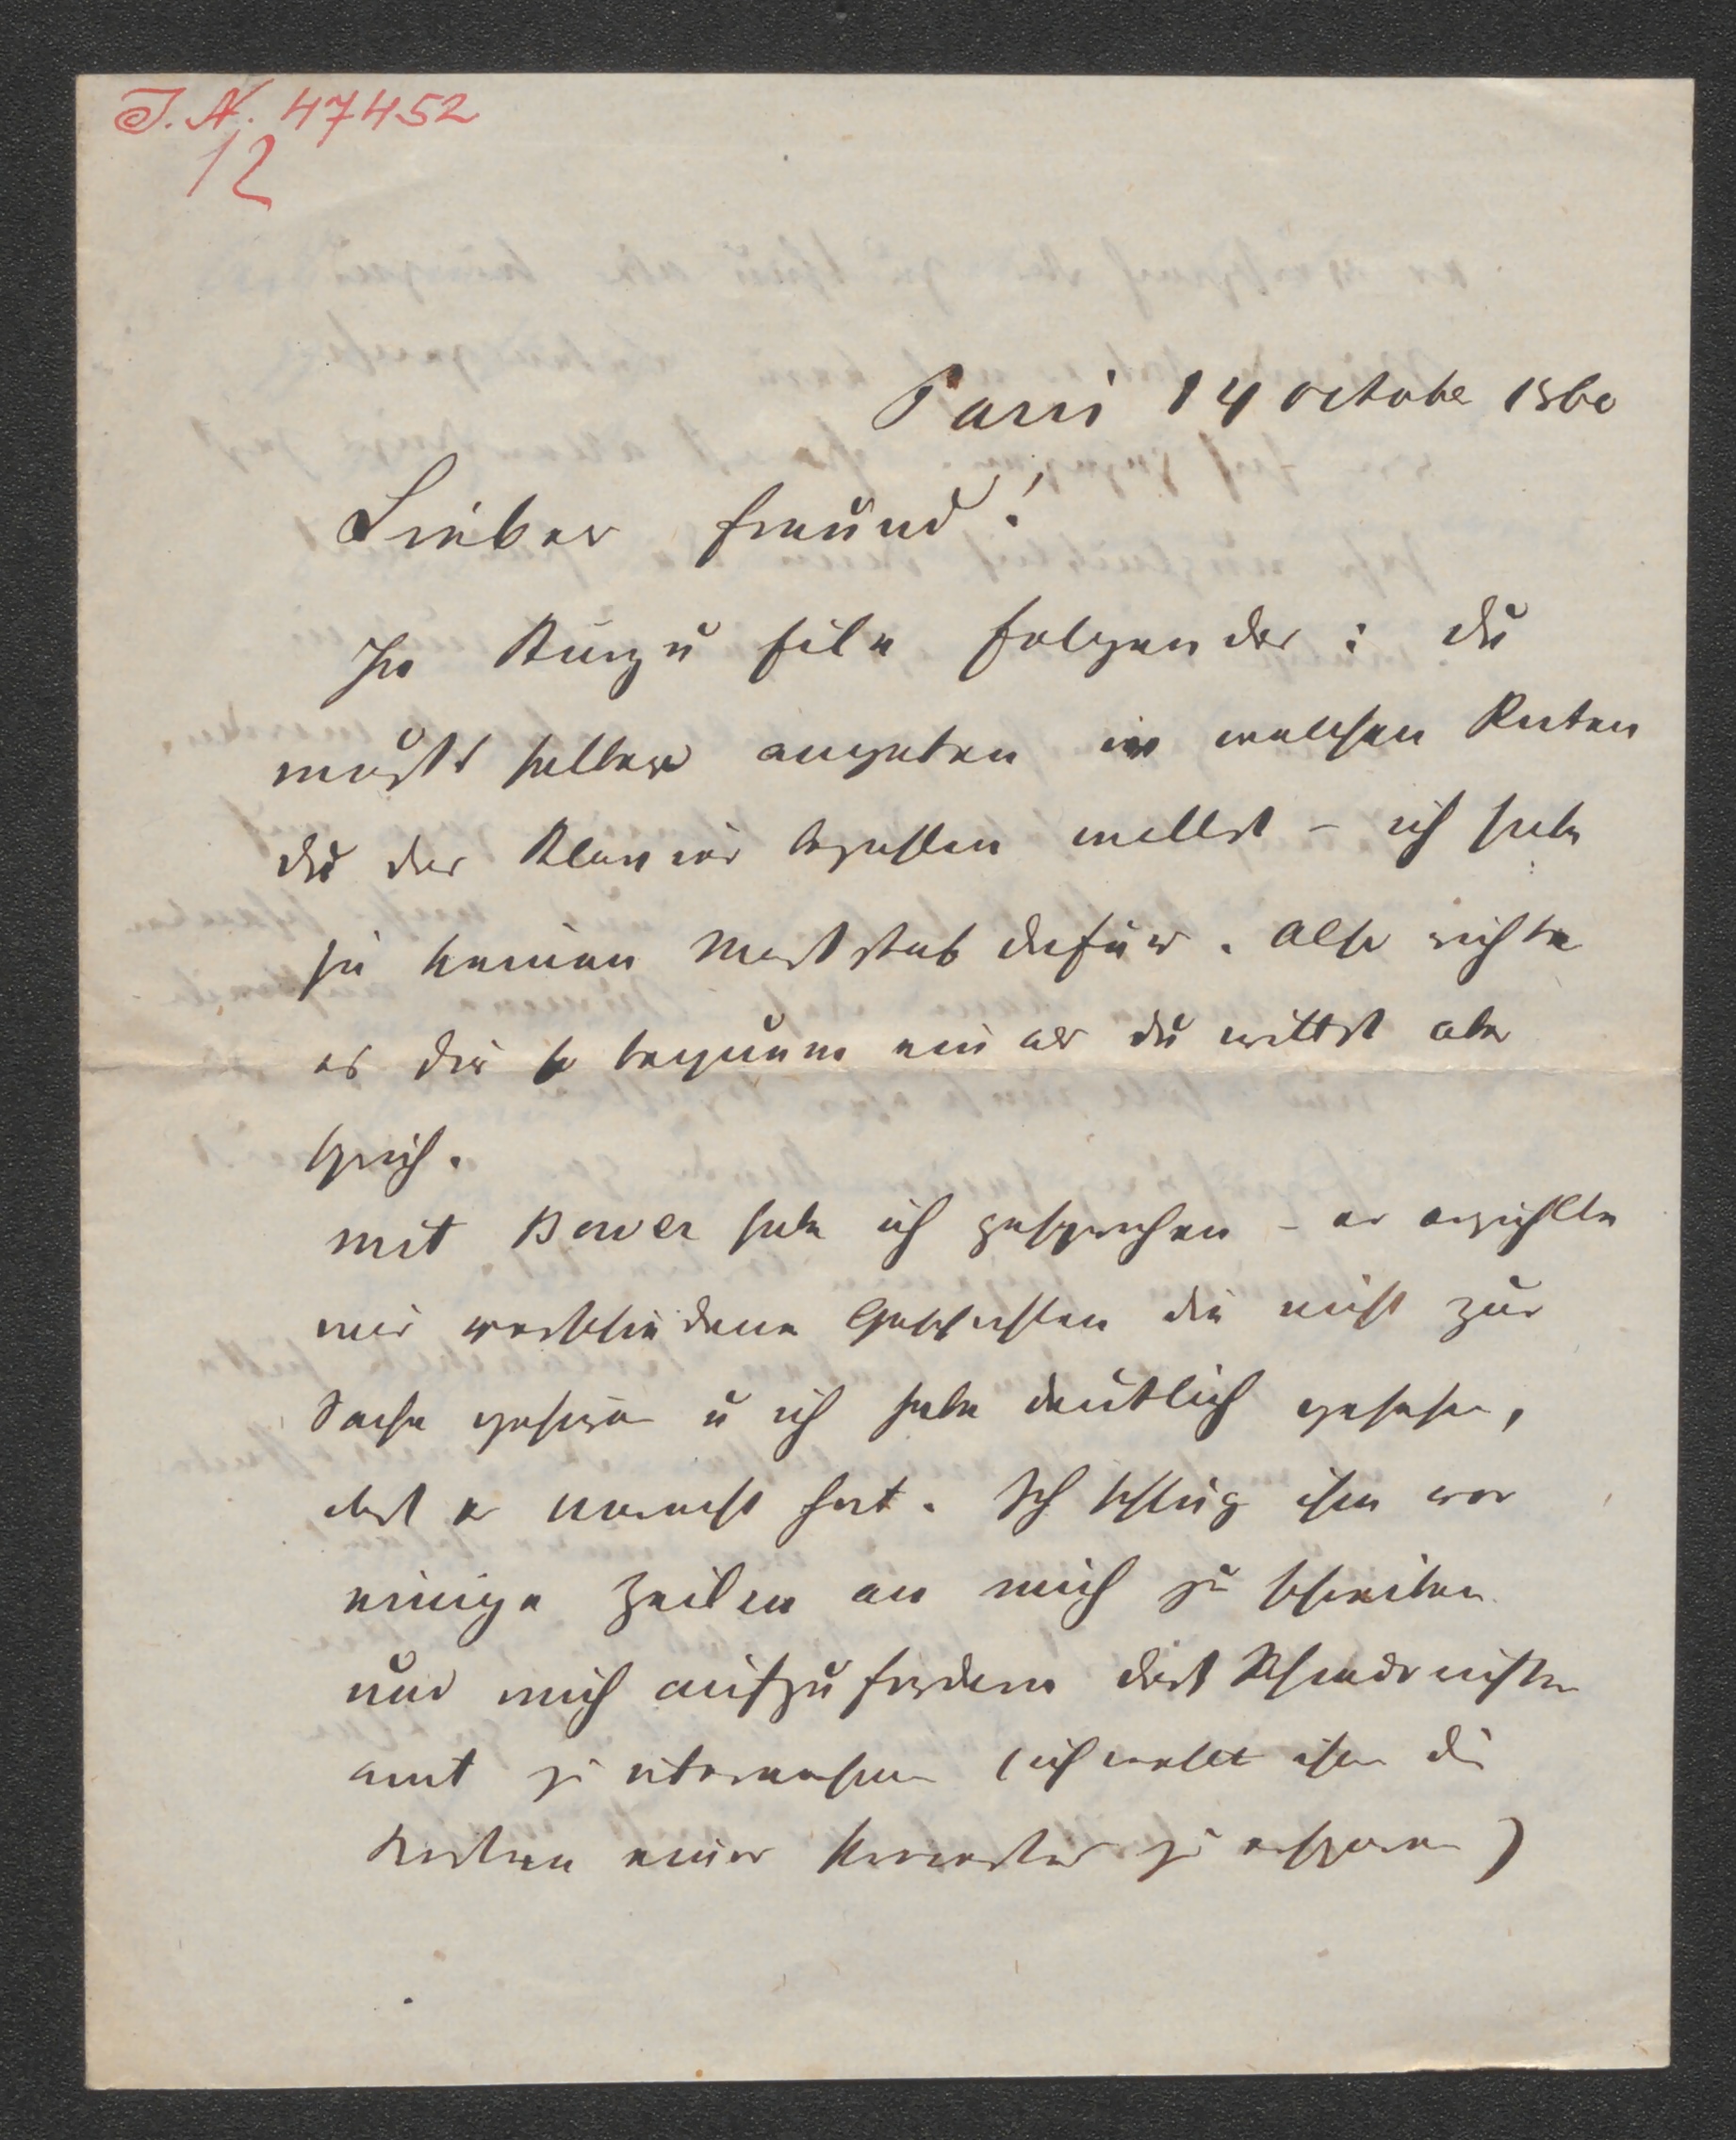 J. N. 47452
12
Paris 14 octobe 1860
Lieber Freund!
In Kürze u Eile Folgendes: du
mußt selber angeben in welchen Raten
du das Klavier bezahlen willst – ich habe
ja keinen Maßstab dafür. Also richte
es dir so bequem ein als du willst aber
sprich.
Mit habe ich gesprochen – er erzählte
mir verschiedene Geschichten die nicht zur
Sache gehören u ich habe deutlich gesehen,
daß er hat. Ich schlug ihm vor
einige Zeilen an mich zu schreiben
und mich aufzufordern das Schiedsrichter
amt zu übernehmen (ich wollte ihm die
Kosten einer zu ersparen)